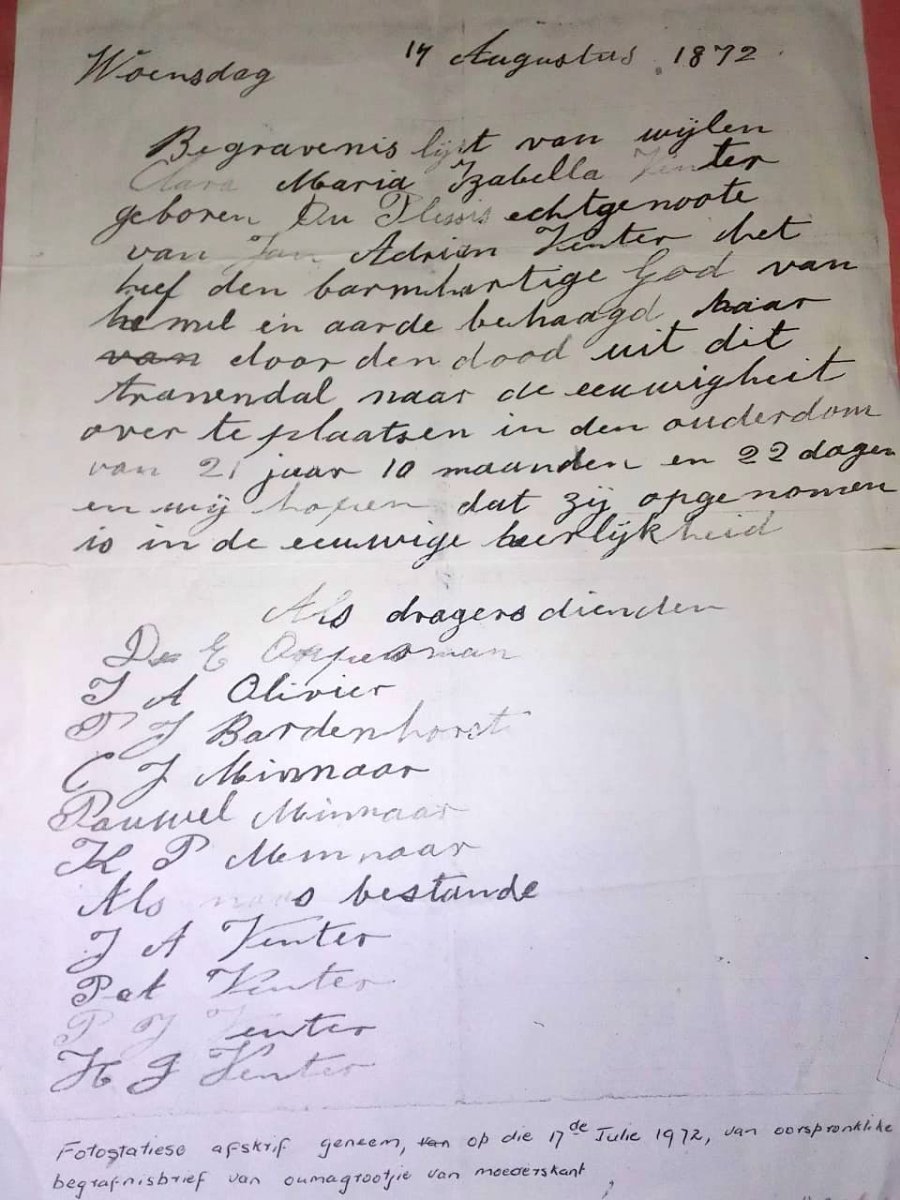 Woensdag 14 Augustus 1872
Begravenis lijst van wijlen
Clara Maria Izabella Venter
geboren Du Plessis echtgenoote
van Jan Adrian Venter het
heef den barmhartige God van
hemel en aarde behaagd haar
van door den dood uit dit
tranendal naar de eeuwigheit
over te plaatsen in den ouderdom
van 21 jaar 10 maanden en 22 dagen
en wij hopen dat zij opgenomen
is in de eeuwige heerlijkheid
Als dragers dienden
E Opperman
J A Olivier
P J Bardenhorst
C J Minnaar
Pauwel Minnaar
K P Minnaar
Als naas bestande
J A Venter
Pet Venter
P J Venter
H J Venter
Fotostatiese afskrif geneem, van op die 17de Julie 1972, van oorspronklike
begrafnisbrief van oumagrootjie van moederskant